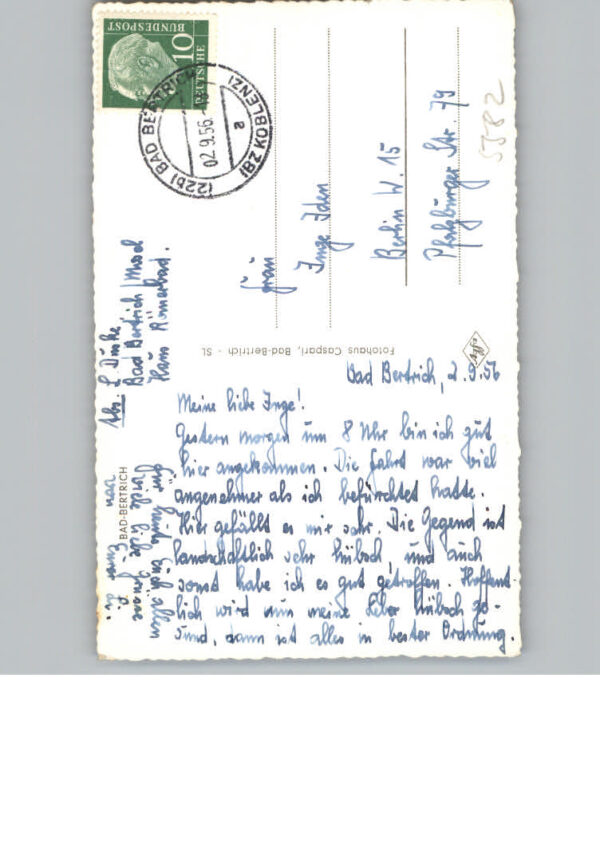 DEUTSCHE
BUNDESPOST
10
(22b) BAD BERTRICH
02.9.56.
a
(BZ KOBLENZ)
5582
Frau
Inge Iden
Berlin W. 15
Pfalzburger Str. 79
Abs.
Bad Bertrich / Mosel
Haus Römerbad.
Fotohaus Caspari, Bad-Bertrich - SL
BAD-BERTRICH
Bad Bertrich, 2.9.56
Meine liebe Inge!
Gestern morgen um 8 Uhr bin ich gut
hier angekommen. Die Fahrt war viel
angenehmer als ich befürchtet hatte.
Hier gefällt es mir sehr. Die Gegend ist
landschaftlich sehr hübsch und auch
sonst habe ich es gut getroffen. Hoffent-
lich wird nun meine Leber hübsch ge-
sund, dann ist alles in bester Ordnung.
Für heute Euch allen
viele liebe
von